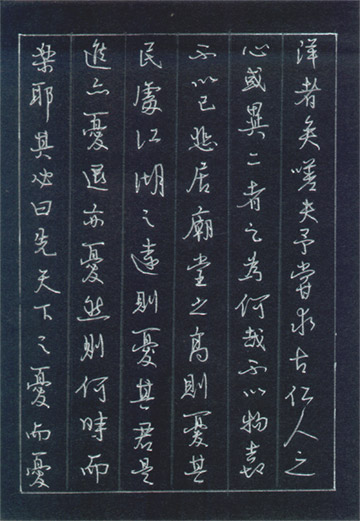 洋者矣嗟夫予嘗求古仁人之
心或異二者之為何哉不以物喜
不以己悲居廟堂之高則憂其
民處江湖之遠則憂其君是
進亦憂退亦憂然則何時而
樂耶其必曰先天下之憂而憂